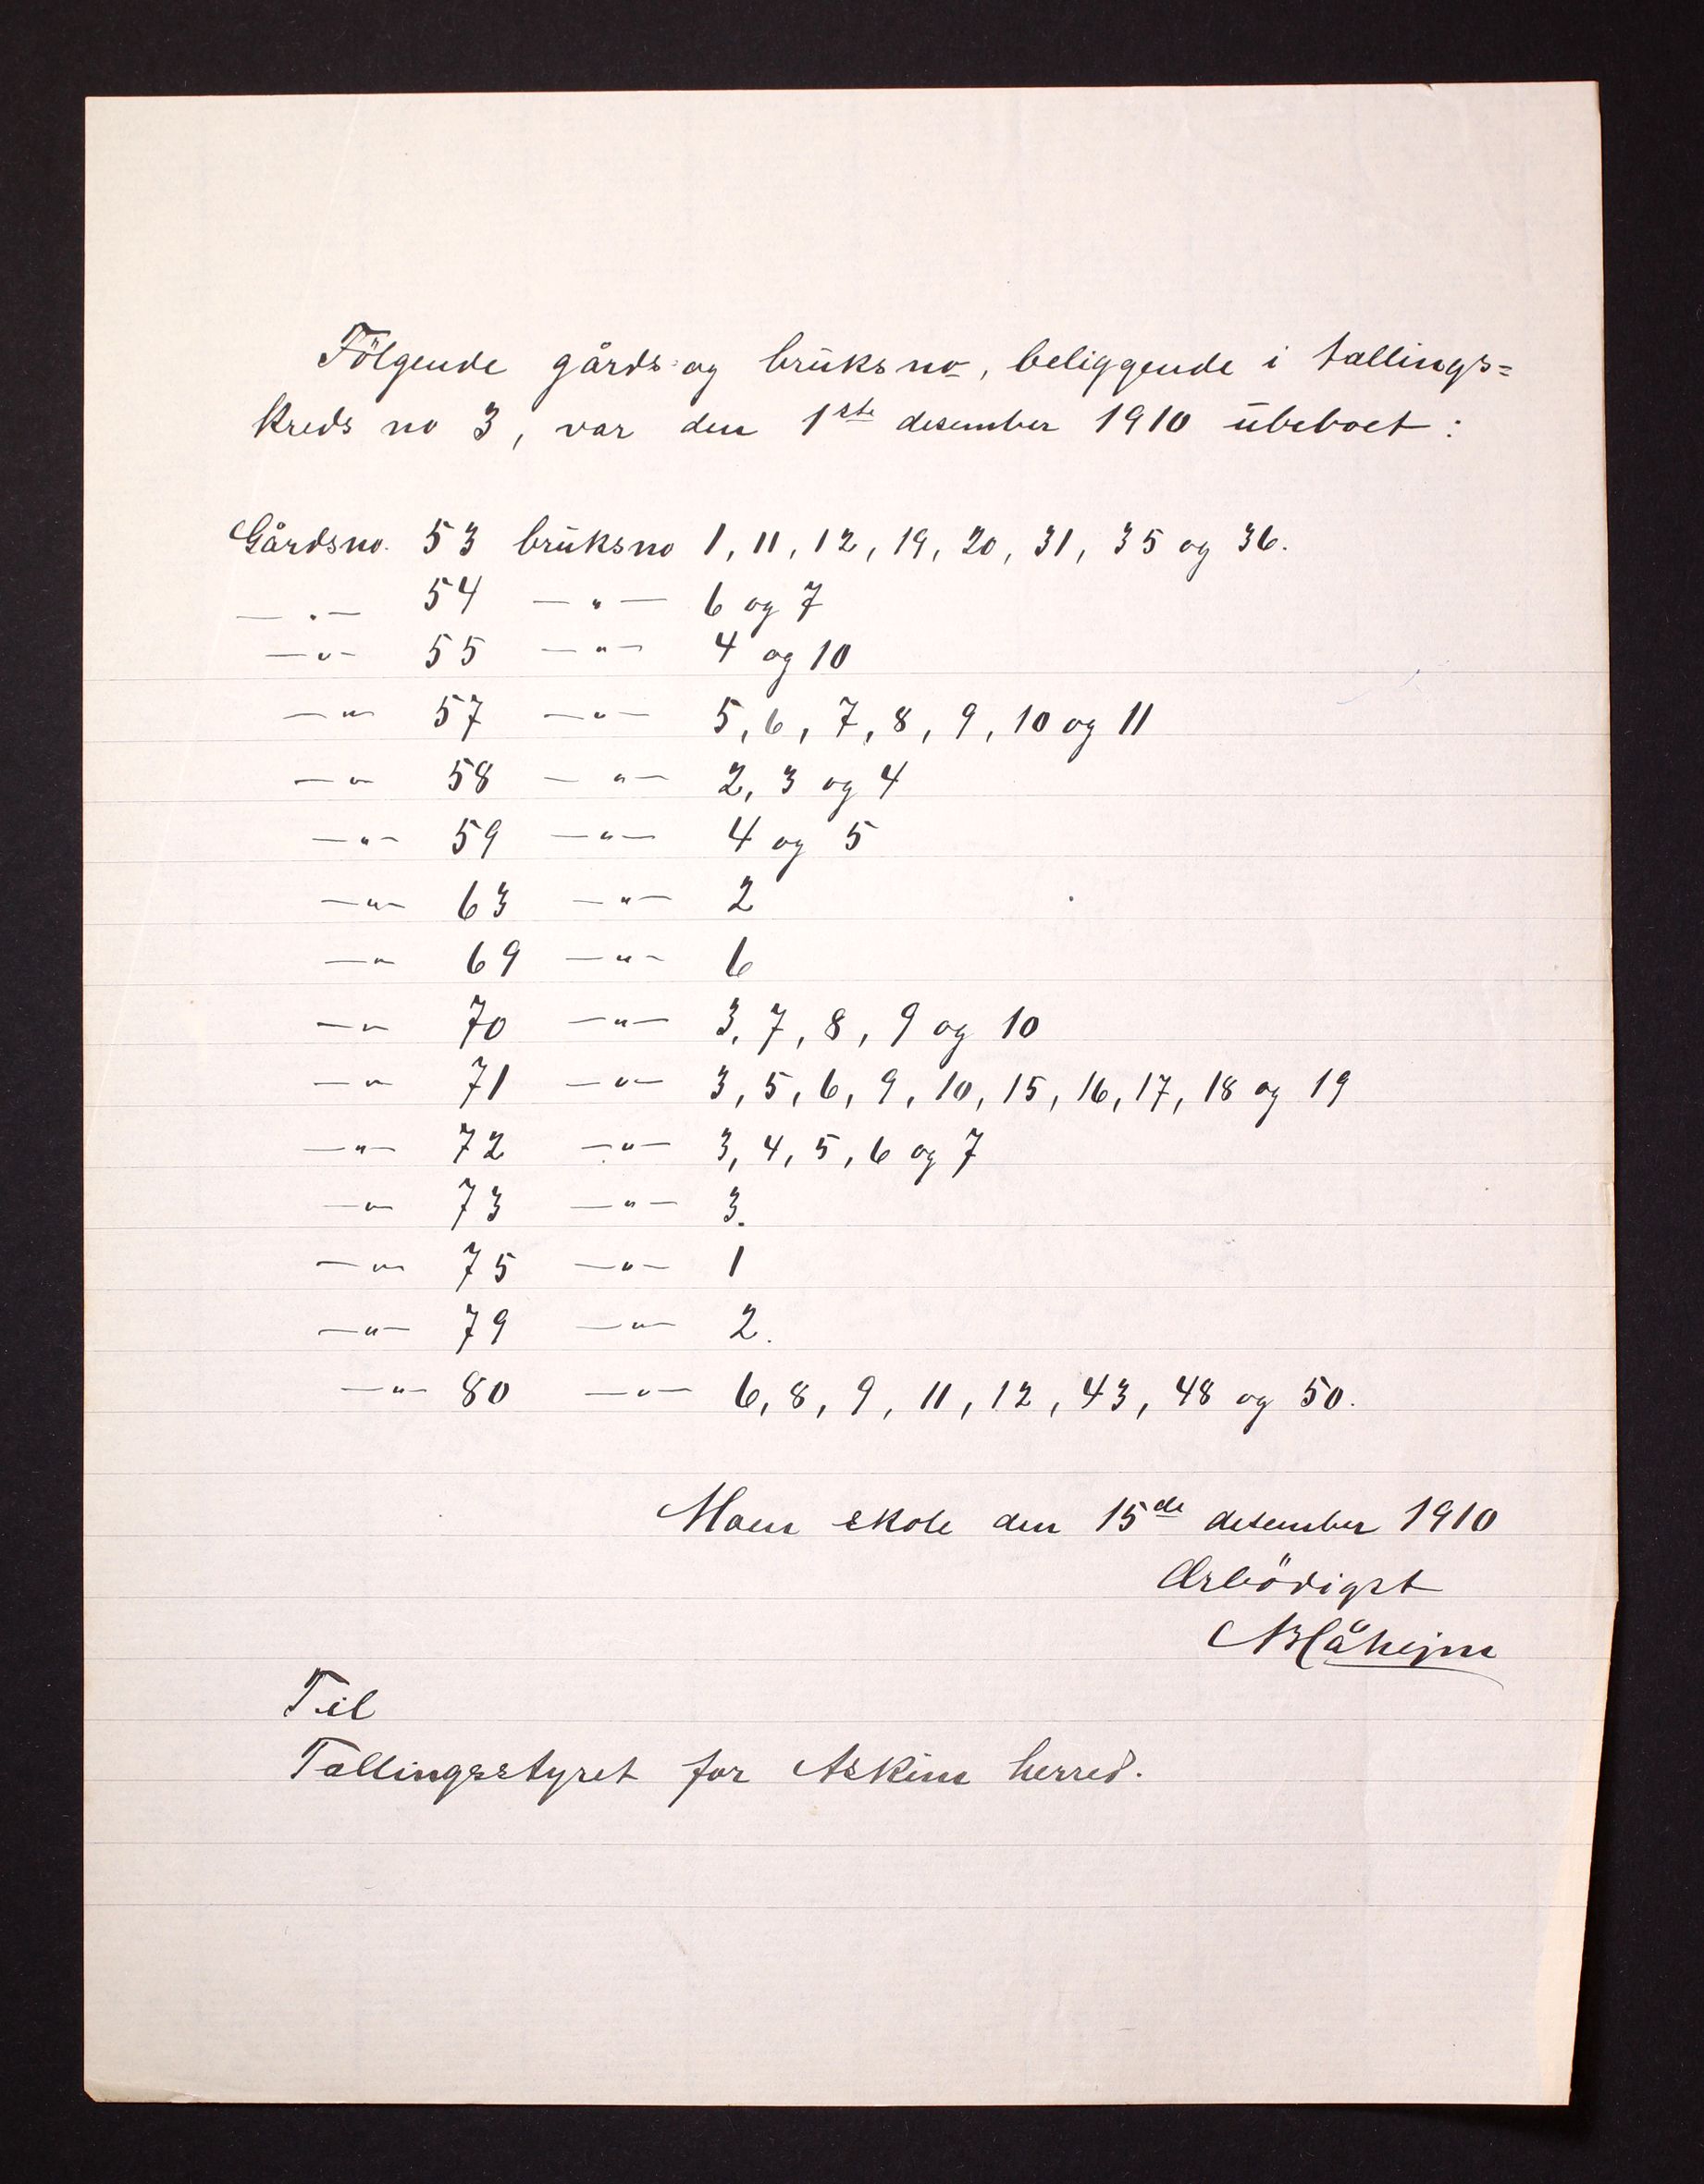 Fölgende gårds- og brüksno, beliggende i tællings=
kreds no 3, var den 1ste desember 1910 übeboet:
Gårdsno. 53 brüksno 1, 11, 12, 19, 20, 31, 35 og 36.
—"— 54 —"— 6 og 7
—"— 55 —"— 4 og 10
—"— 57 —"— 5, 6, 7, 8, 9, 10 og 11
—"— 58 —"— 2, 3 og 4
—"— 59 —"— 4 og 5
—"— 63 —"— 2
—"— 69 —"— 6
—"— 70 —"— 3, 7, 8, 9 og 10
—"— 71 —"— 3, 5, 6, 9, 10, 15, 16, 17, 18 og 19
—"— 72 —"— 3, 4, 5, 6 og 7
—"— 73 —"— 3.
—"— 75 —"— 1
—"— 79 —"— 2.
—"— 80 —"— 6, 8, 9, 11, 12, 43, 48 og 50.
Moen skole den 15de desember 1910
Ærbödigst
Til
Tællingsstyret for Askim herred.